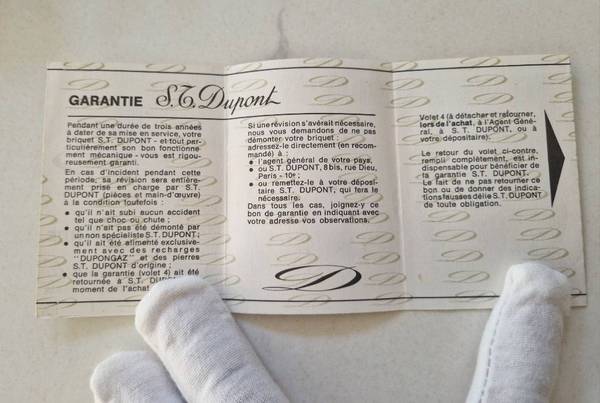 GARANTIE S.T. Dupont
Pendant une durée de trois années
à dater de sa mise en service, votre
briquet S.T. DUPONT - et tout par-
ticulièrement son bon fonctionne-
ment mécanique - vous est rigou-
reusement garanti.
En cas d'incident pendant cette
période, sa révision sera entière-
ment prise en charge par S.T.
DUPONT (pièces et main-d'œuvre)
à la condition toutefois :
● qu'il n'ait subi aucun accident
tel que choc ou chute ;
● qu'il n'ait pas été démonté par
un non spécialiste S.T. DUPONT ;
● qu'il ait été alimenté exclusive-
ment avec des recharges
"DUPONGAZ" et des pierres
S.T. DUPONT d'origine ;
● que la garantie (volet 4) ait été
retournée à S.T. DUPONT
moment de l'achat
Si une révision s'avérait nécessaire,
nous vous demandons de ne pas
démonter votre briquet :
adressez-le directement (en recom-
mandé) à :
● l'agent général de votre pays,
● ou S.T. DUPONT, 8 bis, rue Dieu,
Paris - 10e ;
● ou remettez-le à votre déposi-
taire S.T. DUPONT, qui fera le
nécessaire.
Dans tous les cas, joignez-y ce
bon de garantie en indiquant avec
votre adresse vos observations.
D
Volet 4 (à détacher et retourner,
lors de l'achat, à l'Agent Géné-
ral, à S.T. DUPONT, ou à
votre dépositaire).
Le retour du volet ci-contre,
rempli complètement, est in-
dispensable pour bénéficier de
la garantie S.T. DUPONT.
Le fait de ne pas retourner ce
bon ou de donner des indica-
tions fausses délie S.T. DUPONT
de toute obligation.